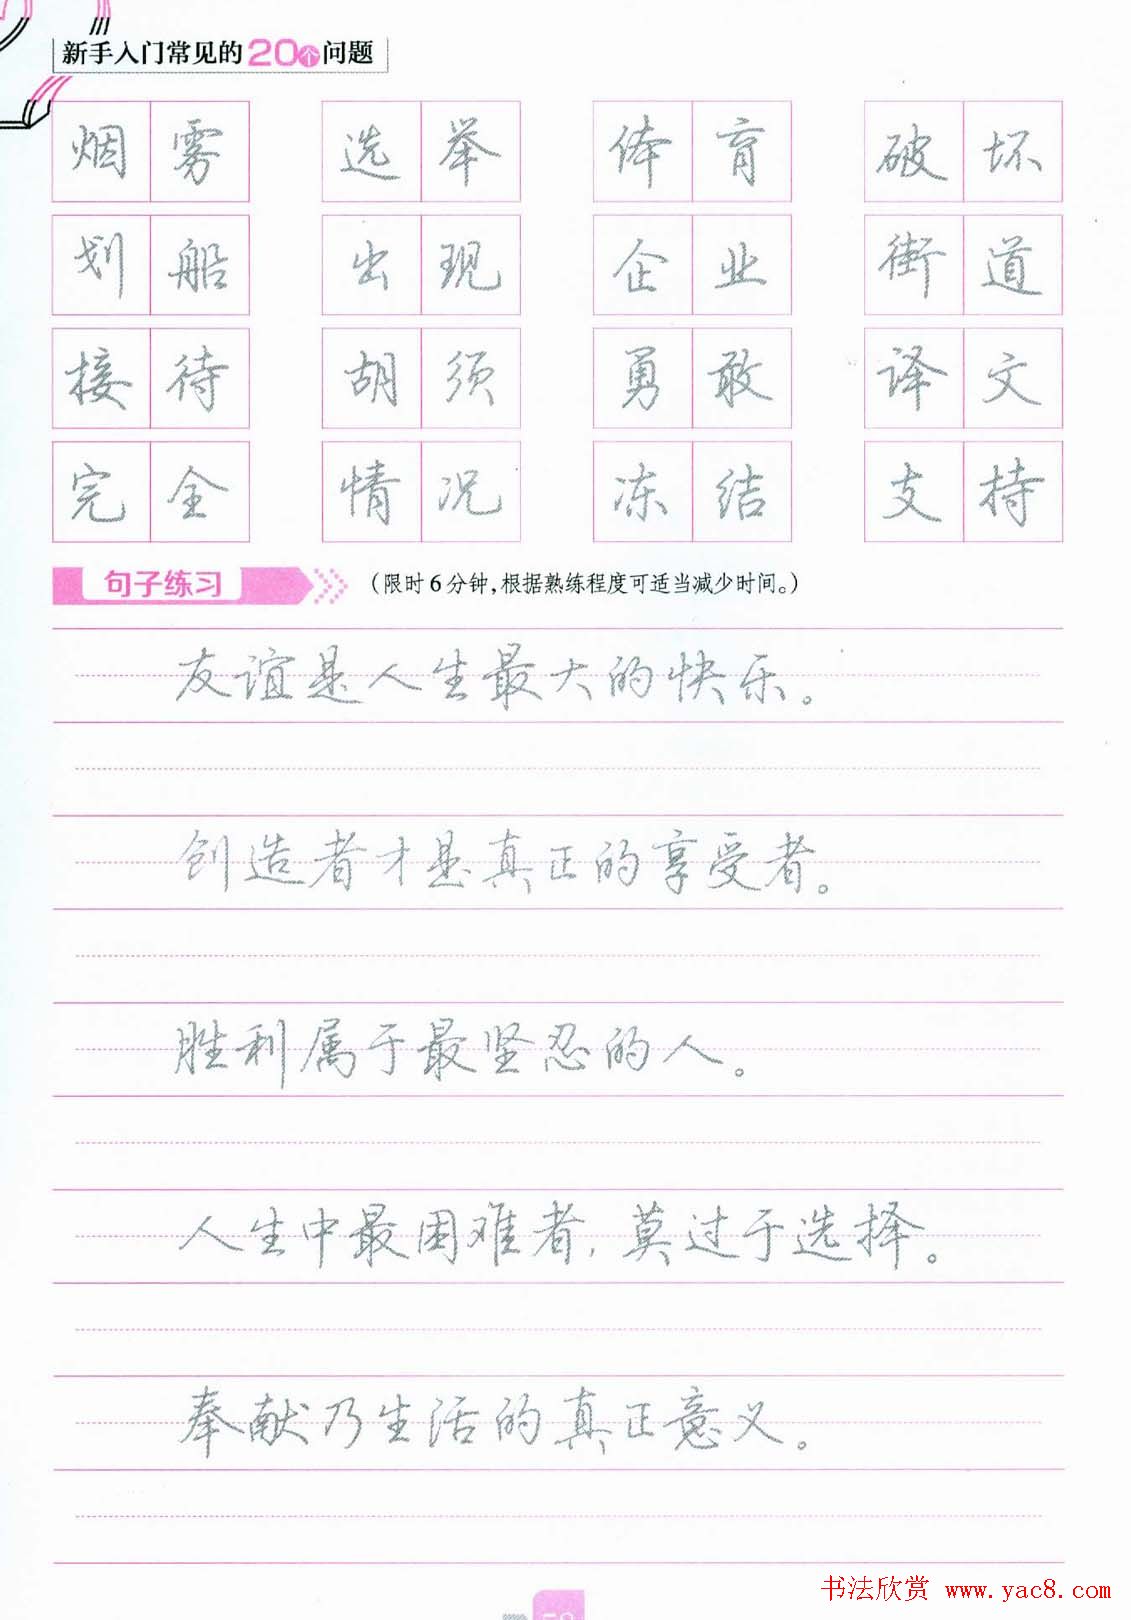 新手入门常见的20个问题
烟雾 选举 体育 破坏
划船 出现 企业 街道
接待 胡须 勇敢 译文
完全 情况 冻结 支持
句子练习 （限时6分钟，根据熟练程度可适当减少时间。）
友谊是人生最大的快乐。
创造者才是真正的享受者。
胜利属于最坚忍的人。
人生中最困难者，莫过于选择。
奉献乃生活的真正意义。
书法欣赏 www.yac8.com